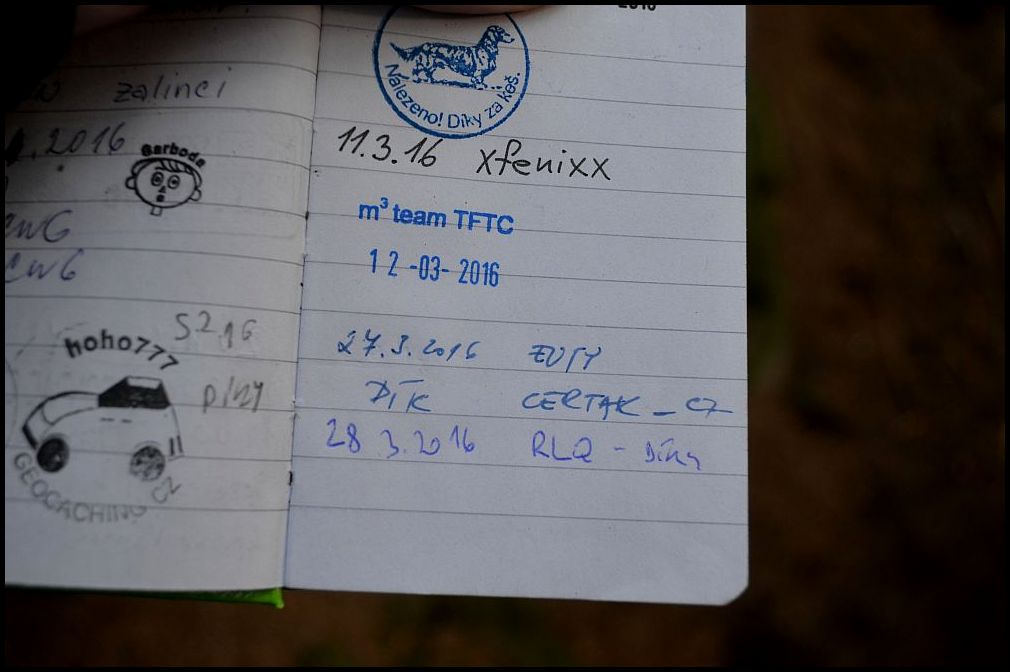 zalinci
2016
Barboda
cwG
cwG
hoho777
S216
plny
GEOCACHING CZ
2016
Nalezeno! Díky za keš.
11.3.16 xfenixx
m³ team TFTC
12-03-2016
27.3.2016
DÍK CERTAK_CZ
28 3.2016 RLQ - Díky